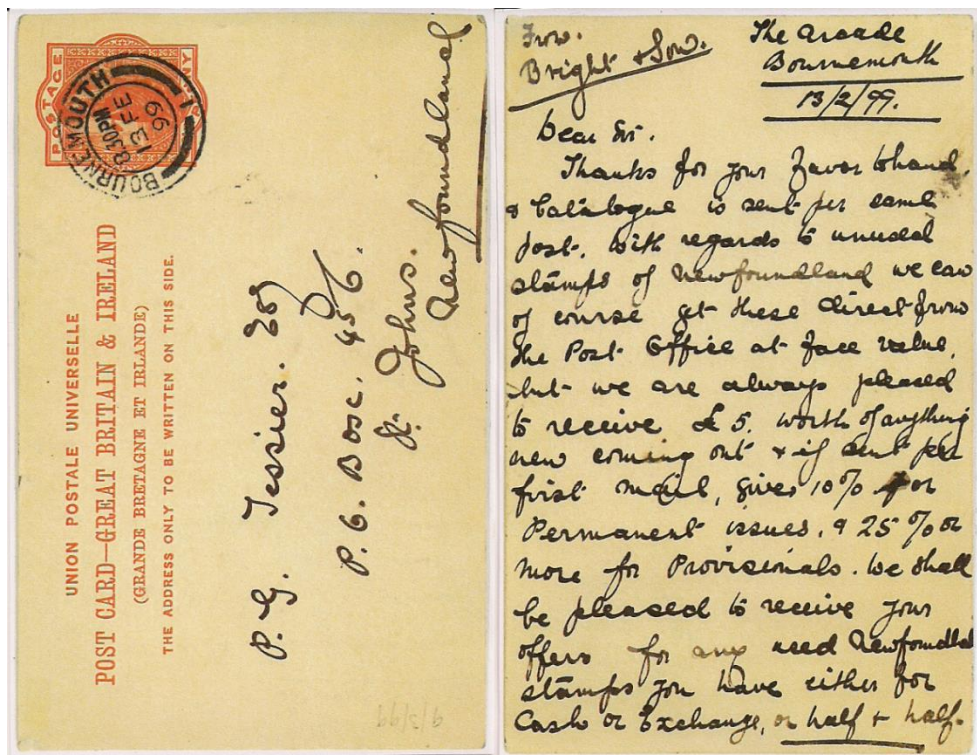 POSTAGE
BOURNEMOUTH
8.30PM
13 FE
99
1
UNION POSTALE UNIVERSELLE
POST CARD—GREAT BRITAIN & IRELAND
(GRANDE BRETAGNE ET IRLANDE)
THE ADDRESS ONLY TO BE WRITTEN ON THIS SIDE.
P. G. Tessier. Esq
P.O. Box. 456.
St. Johns.
Newfoundland
9/3/99
From.
Bright & Son.
The Arcade
Bournemouth
13/2/99.
Dear Sir.
Thanks for your favor to hand,
& Catalogue is sent per same
post. With regards to unused
stamps of Newfoundland we can
of course get these direct from
the Post Office at face value,
but we are always pleased
to receive £5. worth of anything
new coming out & if sent per
first mail, gives 10% for
Permanent issues, & 25% or
more for Provisionals. We shall
be pleased to receive your
offers for any used Newfoundld
stamps you have either for
Cash or Exchange, or half & half.